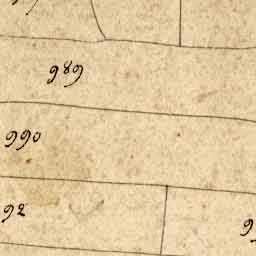 989
990
92
9